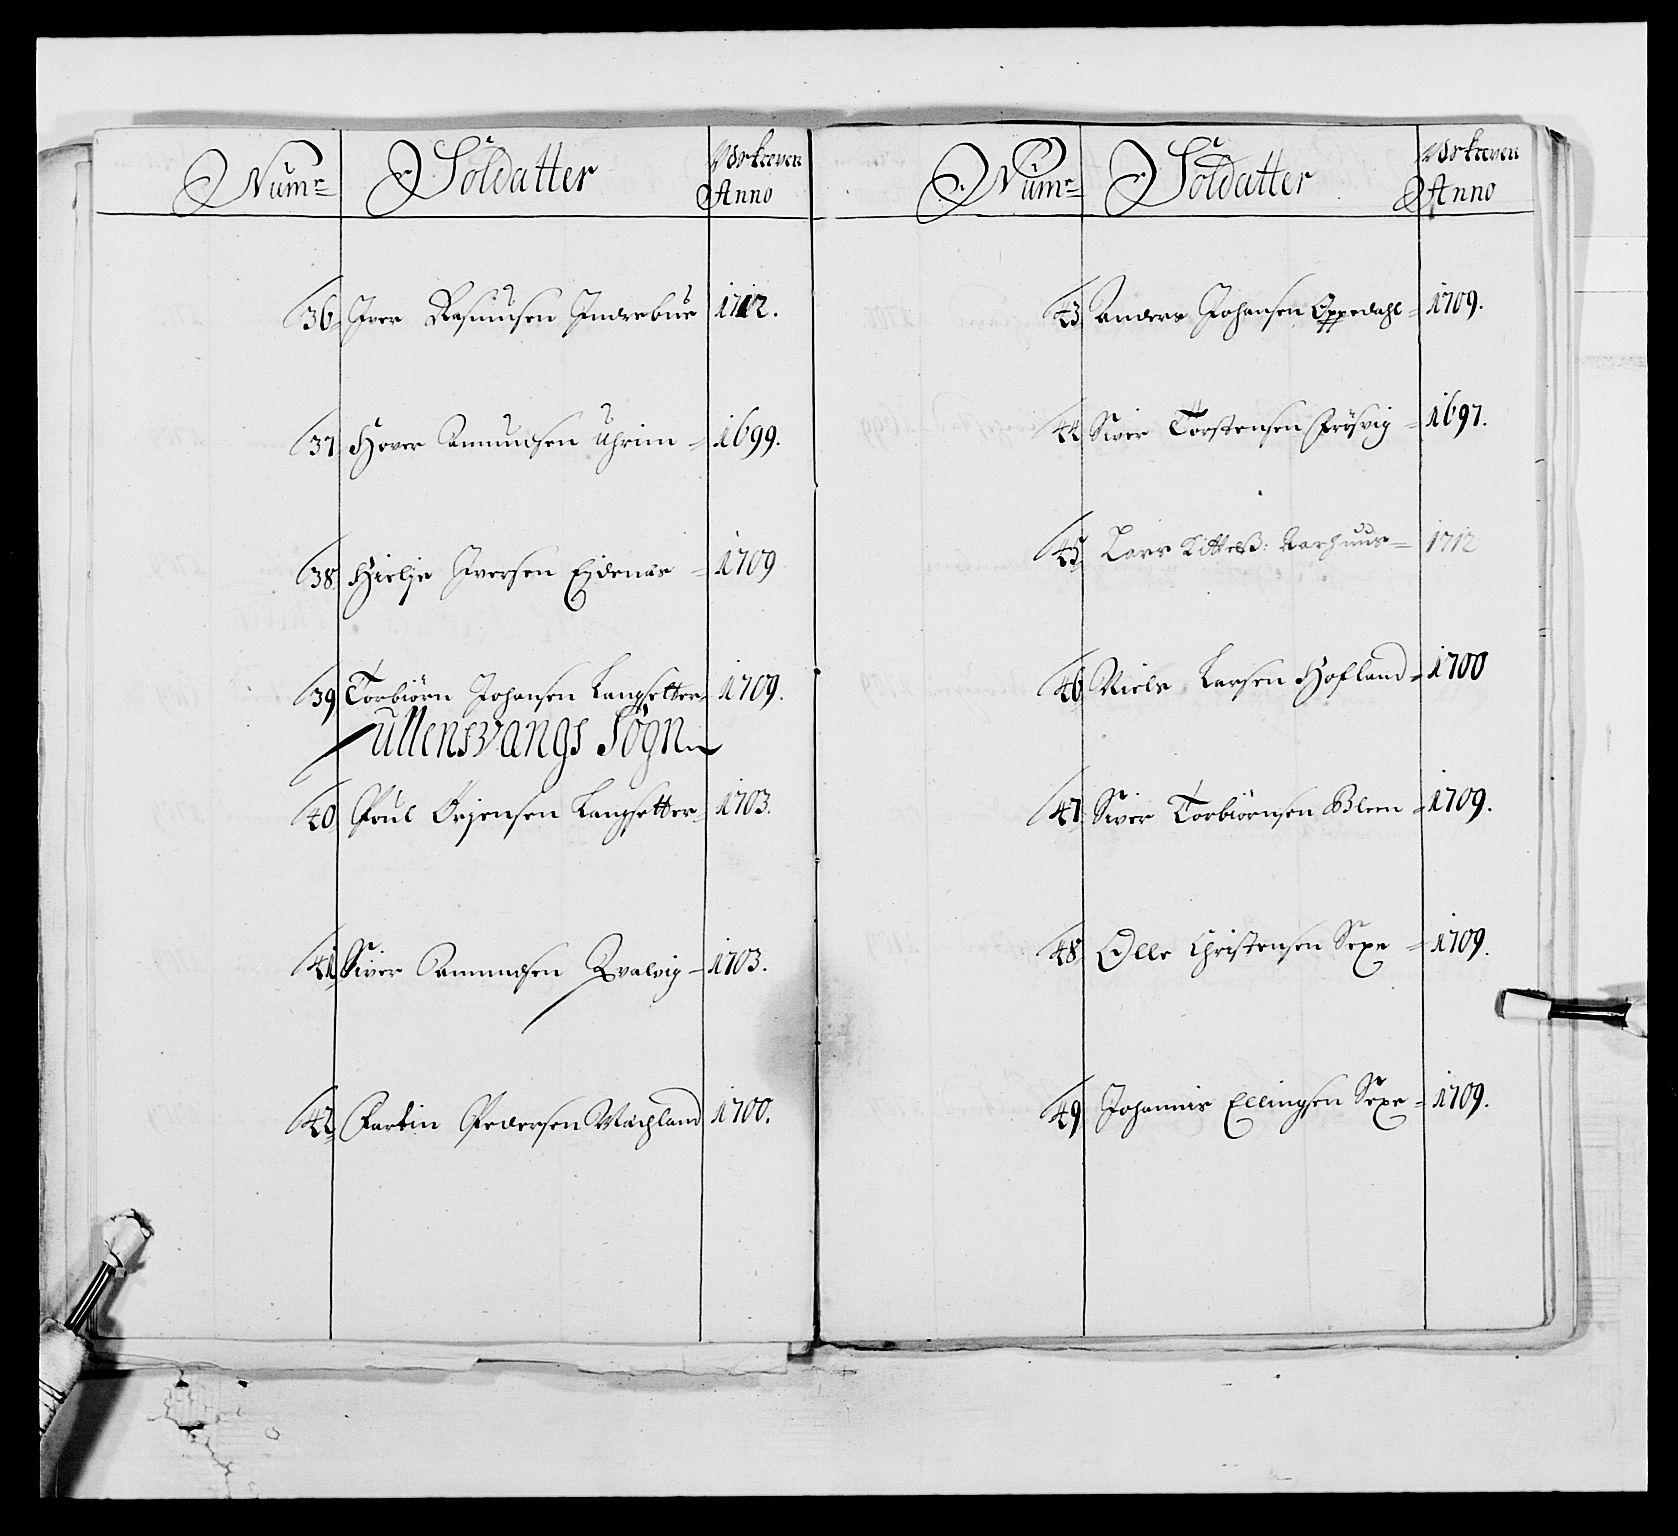 Num: Soldatter Udskreven
Anno
36 Iver Rasmusen Indrebue 1712.
37 Hover Amundsen Uhrim 1699.
38 Hielje Iversen Eidenæs 1709
39 Torbiørn Johansen Langsetter 1709.
Ullensvangs Sogn
40 Poul Örjensen Langsetter 1703.
41 Siver Amundsen Qvalvig 1703.
42 Pedersen Machland 1700.
Num: Soldatter Udskreven
Anno
43 Anders Johansen Oppedahl 1709.
44 Siver Torstensen Frøsvig 1697.
45 Lars Kittelß: Aarhuus 1712
46 Niels Larsen Hofland 1700
47 Siver Torbiørnsen Blem 1709.
48 Olle Christensen Sexe 1709.
49 Johannis Ellingsen Sexe 1709.